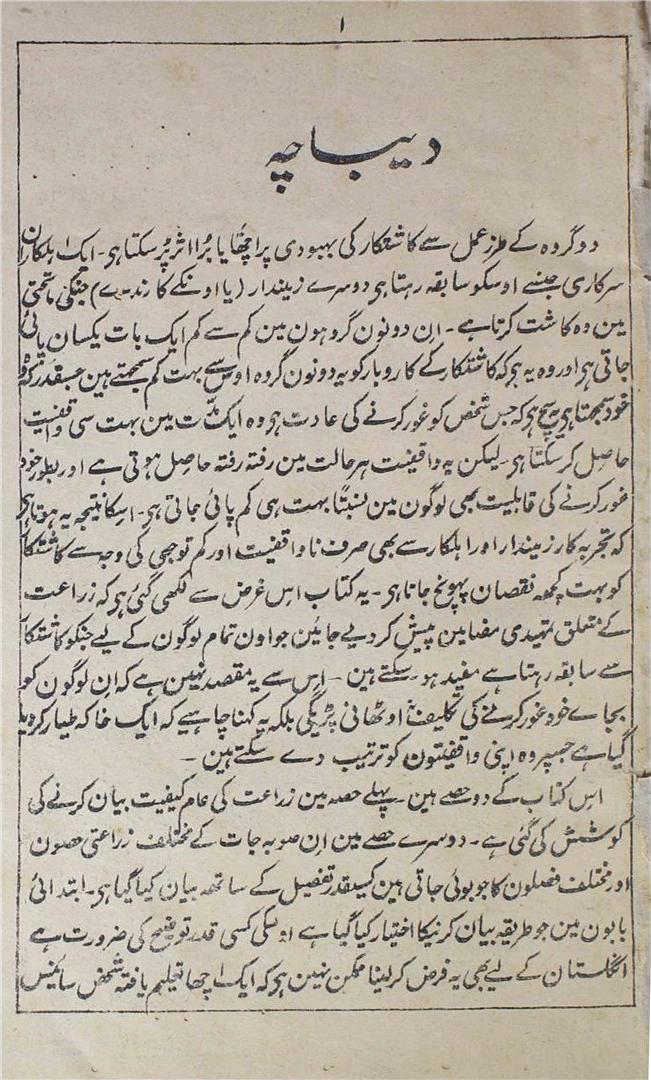 ۱
دیباچہ
دو گروہ کے طرز عمل سے کاشتکار کی بہبودی پر اچھا یا بُرا اثر پڑ سکتا ہی۔ ایک اہلکاران
سرکاری جنسے اوسکو سابقہ رہتا ہی دوسرے زمیندار (یا اونکے کارندے) جنکی ماتحتی
مین وہ کاشت کرتا ہے۔ اِن دونون گروہون مین کم سے کم ایک بات یکسان پائی
جاتی ہی اور وہ یہ ہی کہ کاشتکار کے کاروبار کو یہ دونون گروہ اوس سے بہت کم سمجھتے ہین جسقدر کہ وہ
خود سمجھتا ہی یہ سچ ہی کہ جس شخص کو غور کرنے کی عادت ہی وہ ایک مدّت مین بہت سی واقفیت
حاصل کر سکتا ہی۔ لیکن یہ واقفیت ہر حالت مین رفتہ رفتہ حاصل ہوتی ہے اور بطور خود
غور کرنے کی قابلیت بھی لوگون مین نسبتًا بہت ہی کم پائی جاتی ہی۔ اسکا نتیجہ یہ ہوتا ہی
کہ تجربہ کار زمیندار اور اہلکار سے بھی صرف ناواقفیت اور کم توجہی کی وجہ سے کاشتکار
کو بہت کچھ نقصان پہونچ جاتا ہی۔ یہ کتاب اس غرض سے لکھی گئی ہی کہ زراعت
کے متعلق تمہیدی مضامین پیش کر دیے جائین جو اون تمام لوگون کے لیے جنکو کاشتکار
سے سابقہ رہتا ہے مفید ہو سکتے ہین۔ اِس سے یہ مقصد نہین ہے کہ ان لوگون کو
بجاے خود غور کرنے کی تکلیف نہ اوٹھانی پڑیگی بلکہ یہ کہنا چاہیے کہ ایک خاکہ طیار کر دیا
گیا ہے جسپر وہ اپنی واقفیتون کو ترتیب دے سکتے ہین۔
اِس کتاب کے دو حصے ہین۔ پہلے حصہ مین زراعت کی عام کیفیت بیان کرنے کی
کوشش کی گئی ہے۔ دوسرے حصے مین اِن صوبہ جات کے مختلف زراعتی حصون
اور مختلف فصلون کا جو بوئی جاتی ہین کسیقدر تفصیل کے ساتھ بیان کیا گیا ہی۔ ابتدائی
بابون مین جو طریقہ بیان کرنیکا اختیار کیا گیا ہے اوسکی کسی قدر توضیح کی ضرورت ہے
انگلستان کے لیے بھی یہ فرض کر لینا ممکن نہین ہی کہ ایک اچھا تعلیم یافتہ شخص سائنس